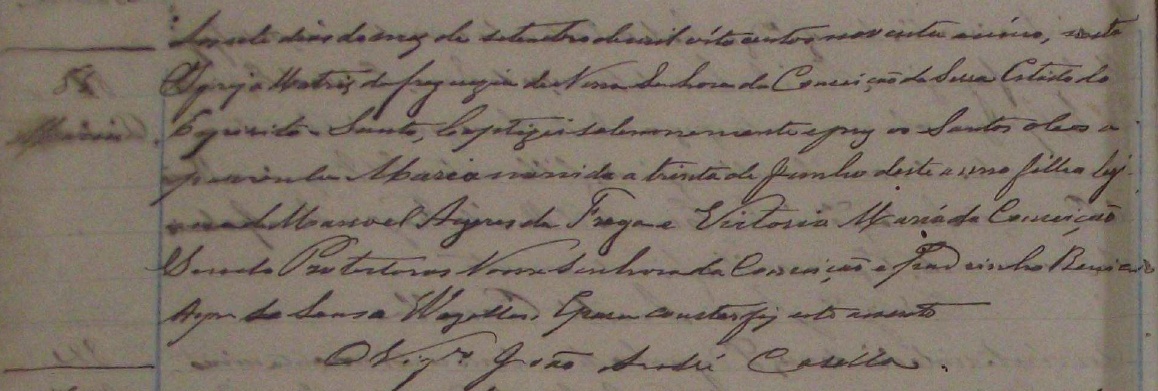 Aos sete dias do mez de setembro de mil oito centos noventa e cinco, nesta
88
Igreja Matriz da freguezia de Nossa Senhora da Conceição da Serra Estado do
Maria
Espirito Santo, baptizei solemnemente e puz os Santos oleos a
parvula Maria nascida a trinta de Junho deste anno filha legi-
tima de Manoel Ayres da Fraga e Victoria Maria da Conceição
Sendo Protectora Nossa Senhora da Conceição e Padrinho
Ayres de Sousa E para constar fiz este assento
O Vigrº João André Casella.